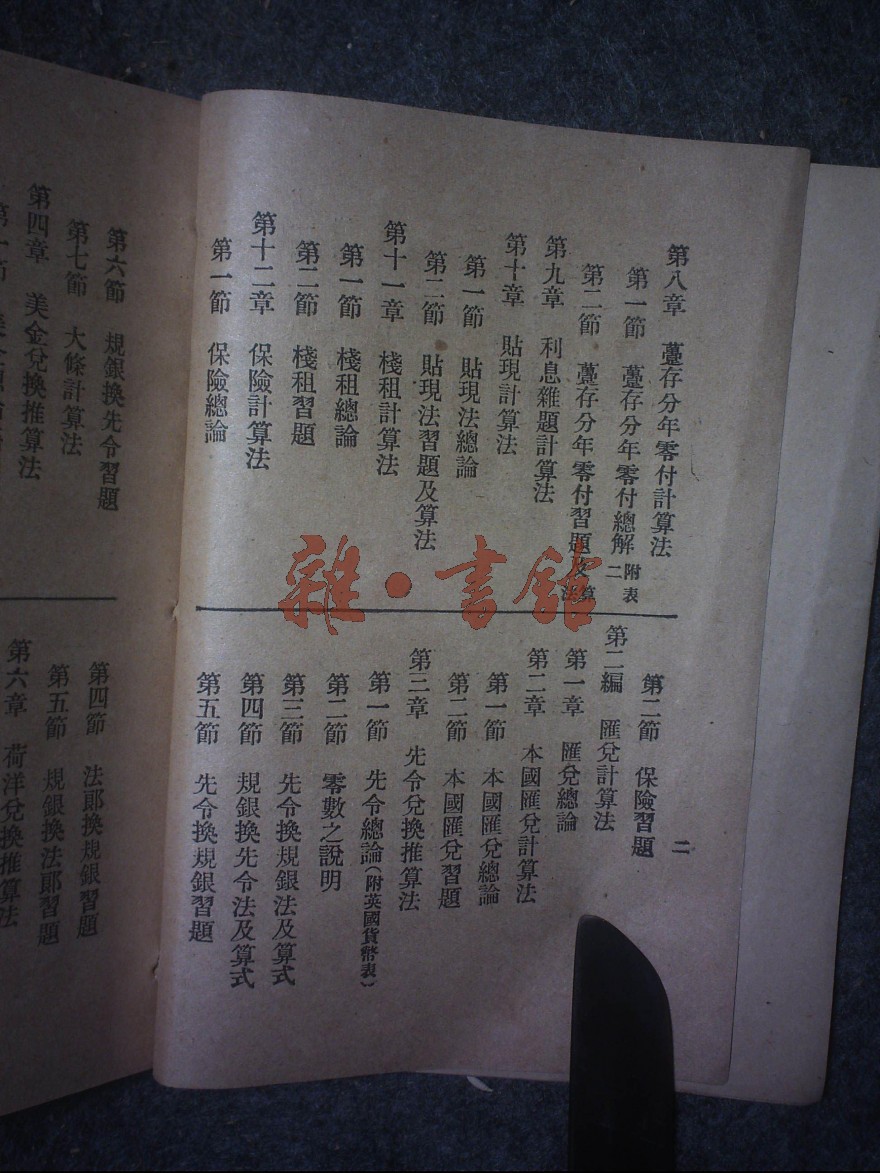 第八章 薹存分年零付計算法
第一節 薹存分年零付總解附表二
第二節 薹存分年零付習題及算法
第九章 利息雜題計算法
第十章 貼現計算法
第一節 貼現法總論
第二節 貼現法習題及算法
第十一章 棧租計算法
第一節 棧租總論
第二節 棧租習題
第十二章 保險計算法
第一節 保險總論
第二節 保險習題
第二編 匯兌計算法
第一章 匯兌總論
第二章 本國匯兌計算法
第一節 本國匯兌總論
第二節 本國匯兌習題
第三章 先令兌換推算法
第一節 先令總論(附英國貨幣表)
第二節 零數之說明
第三節 先令換規銀法及算式
第四節 規銀換先令法及算式
第五節 先令換規銀習題
二
第六節 規銀換先令習題
第七節 大條計算法
第四章 美金兌換推算法
第一節
第四節 法郞換規銀習題
第五節 規銀換法郞習題
第六章 荷洋兌換推算法
雜·書館